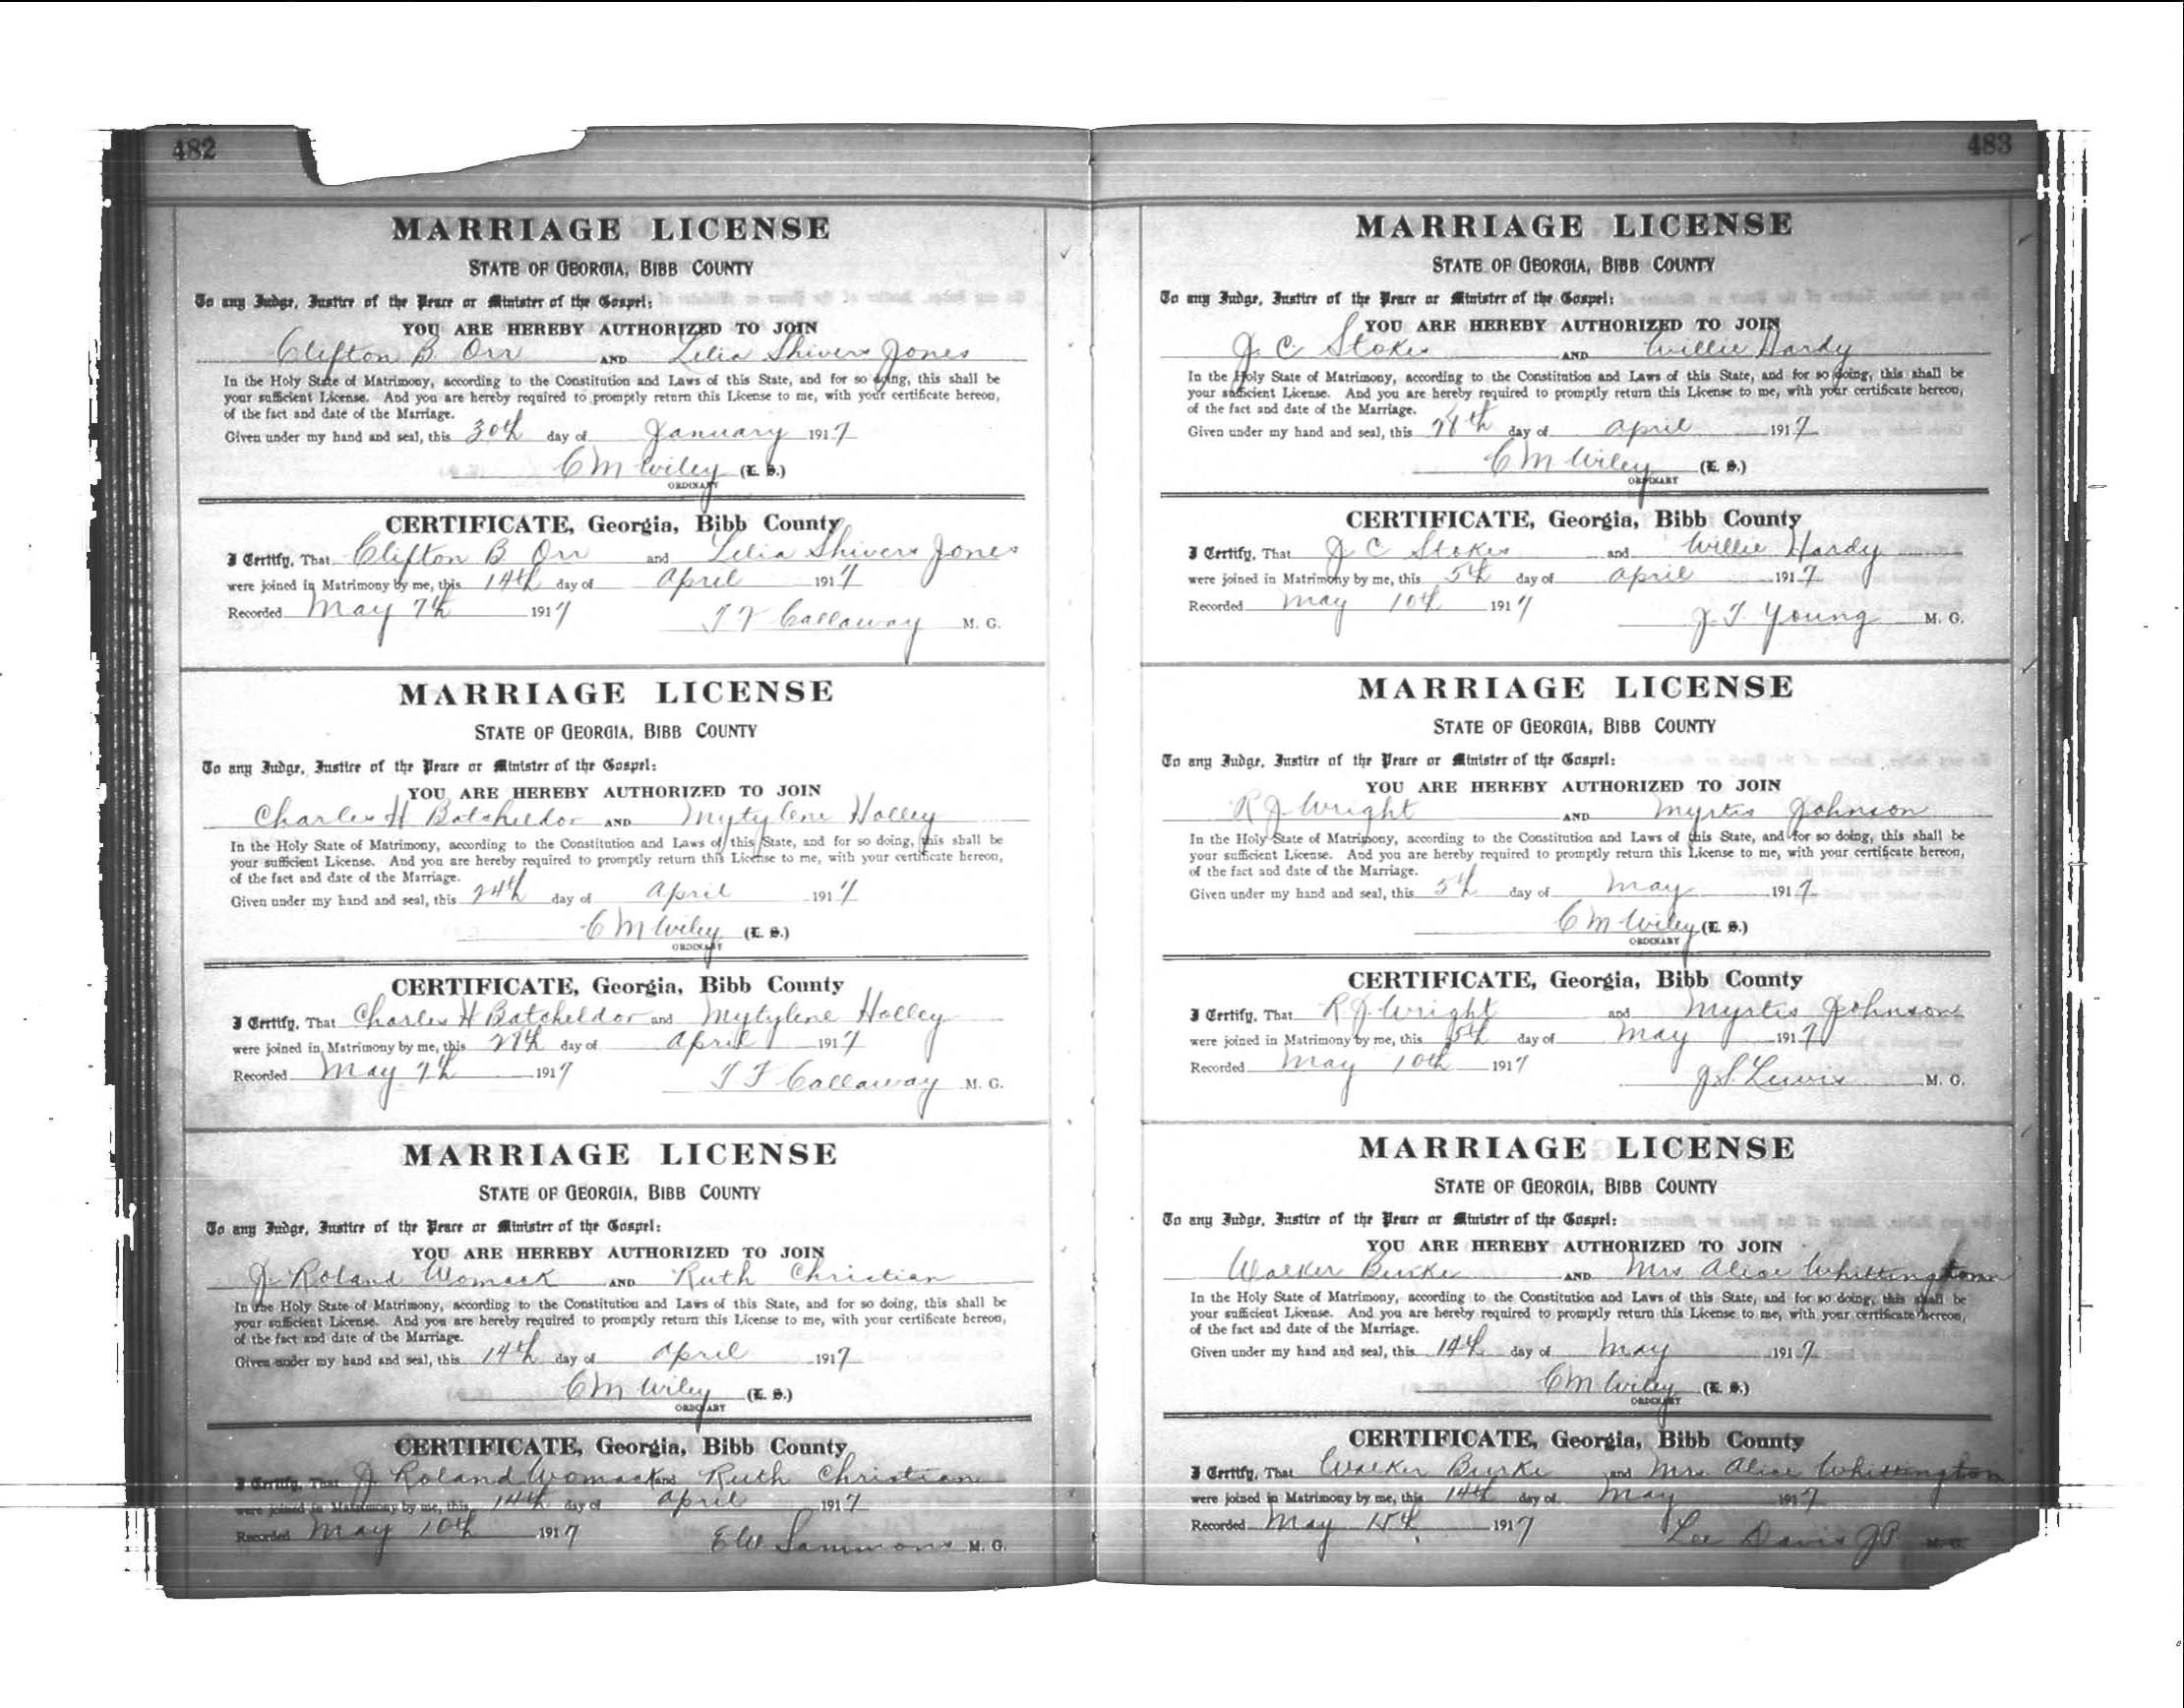 482
MARRIAGE LICENSE
STATE OF GEORGIA, BIBB COUNTY
To any Judge, Justice of the Peace or Minister of the Gospel:
YOU ARE HEREBY AUTHORIZED TO JOIN
Clifton B Orr AND Lelia Shivers Jones
In the Holy State of Matrimony, according to the Constitution and Laws of this State, and for so doing, this shall be
your sufficient License. And you are hereby required to promptly return this License to me, with your certificate hereon,
of the fact and date of the Marriage.
Given under my hand and seal, this 30th day of January 1917
C M Wiley (L. S.)
ORDINARY
CERTIFICATE, Georgia, Bibb County
I Certify, That Clifton B Orr and Lelia Shivers Jones
were joined in Matrimony by me, this 14th day of April 1917
Recorded May 7th 1917 T F Callaway M. G.
MARRIAGE LICENSE
STATE OF GEORGIA, BIBB COUNTY
To any Judge, Justice of the Peace or Minister of the Gospel:
YOU ARE HEREBY AUTHORIZED TO JOIN
Charles H Batcheldor AND Mytylene Holley
In the Holy State of Matrimony, according to the Constitution and Laws of this State, and for so doing, this shall be
your sufficient License. And you are hereby required to promptly return this License to me, with your certificate hereon,
of the fact and date of the Marriage.
Given under my hand and seal, this 24th day of April 1917
C M Wiley (L. S.)
ORDINARY
CERTIFICATE, Georgia, Bibb County
I Certify, That Charles H Batcheldor and Mytylene Holley
were joined in Matrimony by me, this day of April 1917
Recorded May 7th 1917 T F Callaway M. G.
MARRIAGE LICENSE
STATE OF GEORGIA, BIBB COUNTY
To any Judge, Justice of the Peace or Minister of the Gospel:
YOU ARE HEREBY AUTHORIZED TO JOIN
J. Roland Womack AND Ruth Christian
In the Holy State of Matrimony, according to the Constitution and Laws of this State, and for so doing, this shall be
your sufficient License. And you are hereby required to promptly return this License to me, with your certificate hereon,
of the fact and date of the Marriage.
Given under my hand and seal, this 14th day of April 1917
C M Wiley (L. S.)
ORDINARY
CERTIFICATE, Georgia, Bibb County
I Certify, That J. Roland Womack and Ruth Christian
were joined in Matrimony by me, this 14th day of April 1917
Recorded May 10th 1917 E W Sammons M. G.
483
MARRIAGE LICENSE
STATE OF GEORGIA, BIBB COUNTY
To any Judge, Justice of the Peace or Minister of the Gospel:
YOU ARE HEREBY AUTHORIZED TO JOIN
J. C. Stokes AND Willie Hardy
In the Holy State of Matrimony, according to the Constitution and Laws of this State, and for so doing, this shall be
your sufficient License. And you are hereby required to promptly return this License to me, with your certificate hereon,
of the fact and date of the Marriage.
Given under my hand and seal, this day of April 1917
C M Wiley (L. S.)
ORDINARY
CERTIFICATE, Georgia, Bibb County
I Certify, That J C Stokes and Willie Hardy
were joined in Matrimony by me, this 5th day of April 1917
Recorded May 10th 1917 J. T. Young M. G.
MARRIAGE LICENSE
STATE OF GEORGIA, BIBB COUNTY
To any Judge, Justice of the Peace or Minister of the Gospel:
YOU ARE HEREBY AUTHORIZED TO JOIN
R J Wright AND Myrtis Johnson
In the Holy State of Matrimony, according to the Constitution and Laws of this State, and for so doing, this shall be
your sufficient License. And you are hereby required to promptly return this License to me, with your certificate hereon,
of the fact and date of the Marriage.
Given under my hand and seal, this 5th day of May 1917
C M Wiley (L. S.)
ORDINARY
CERTIFICATE, Georgia, Bibb County
I Certify, That R. J. Wright and Myrtis Johnson
were joined in Matrimony by me, this 5th day of May 1917
Recorded May 10th 1917 J. S. Lewis M. G.
MARRIAGE LICENSE
STATE OF GEORGIA, BIBB COUNTY
To any Judge, Justice of the Peace or Minister of the Gospel:
YOU ARE HEREBY AUTHORIZED TO JOIN
Walker Burke AND Mrs Alice Whittington
In the Holy State of Matrimony, according to the Constitution and Laws of this State, and for so doing, this shall be
your sufficient License. And you are hereby required to promptly return this License to me, with your certificate hereon,
of the fact and date of the Marriage.
Given under my hand and seal, this 14th day of May 1917
C M Wiley (L. S.)
ORDINARY
CERTIFICATE, Georgia, Bibb County
I Certify, That Walker Burke and Mrs Alice Whittington
were joined in Matrimony by me, this 14th day of May 1917
Recorded May 15th 1917 Lee Davis JP M. G.